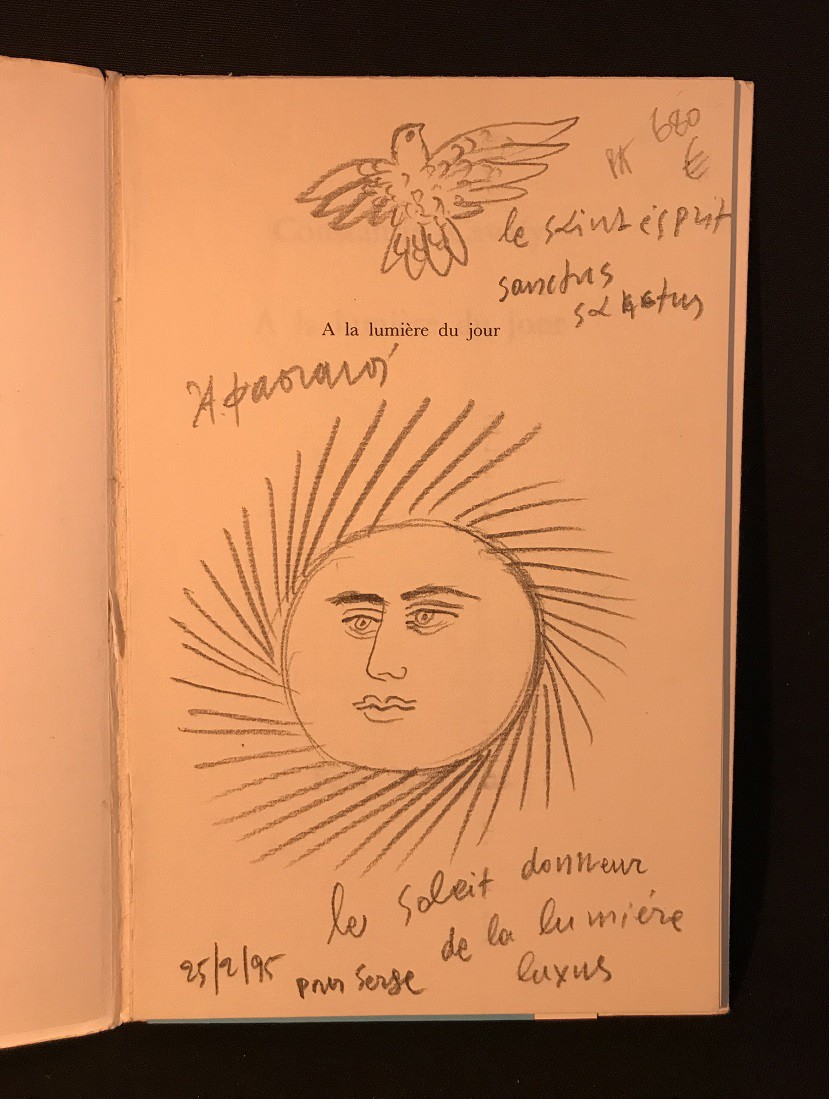 680
PK €
le saint esprit
sanctus
sanctus
A la lumière du jour
Α.Φασιανός
le soleil donneur
de la lumière
25/2/95 pour Serge luxus